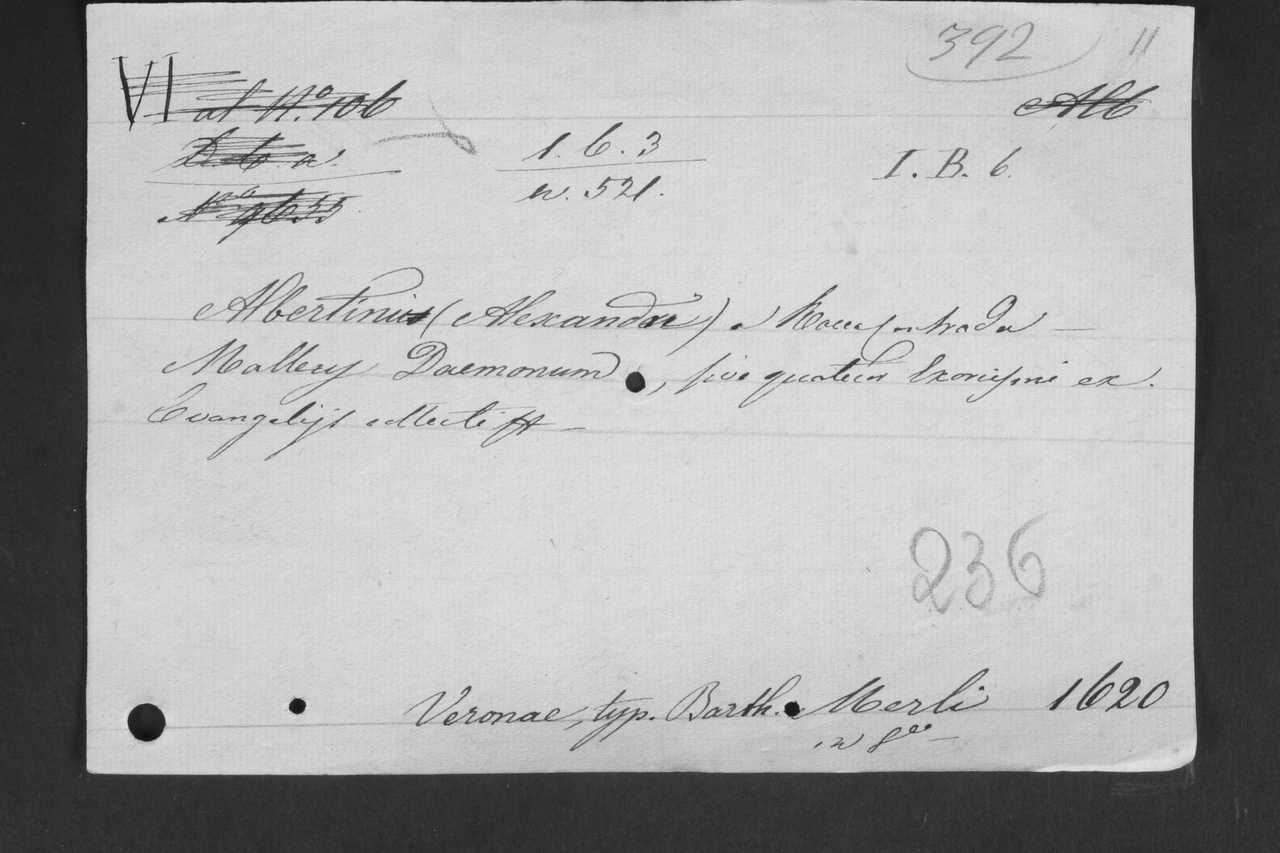 392 11
VI al N.º 106 Alb
D. 6 a. 1. 6. 3 I. B. 6.
Nº 9633 n. 521.
Albertinus (Alexander) a Rocca Contrada —
Malleus Daemonum, sive quatuor Exorcismi ex
Evangelijs collecti —
236
Veronae, typ. Barth. Merli 1620
in 8vo —